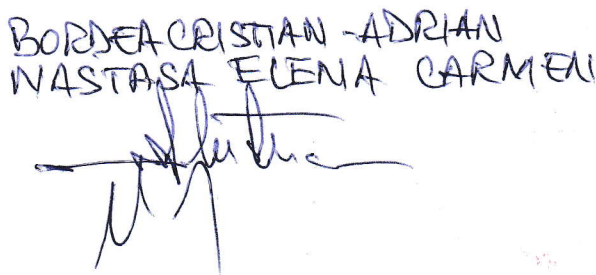 BORDEA CRISTIAN-ADRIAN
NASTASA ELENA CARMEN